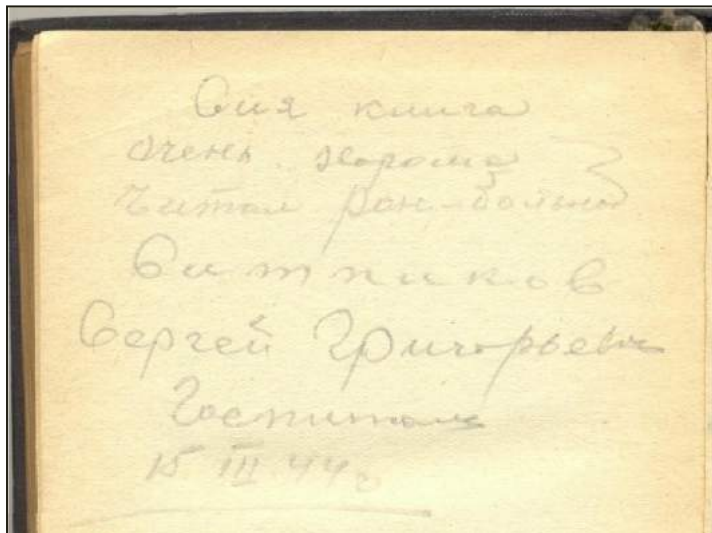 Сия книга
очень хороша
Читал ран-больной
Ситников
Сергей Григорьевич
Госпиталь
15 III 44 г